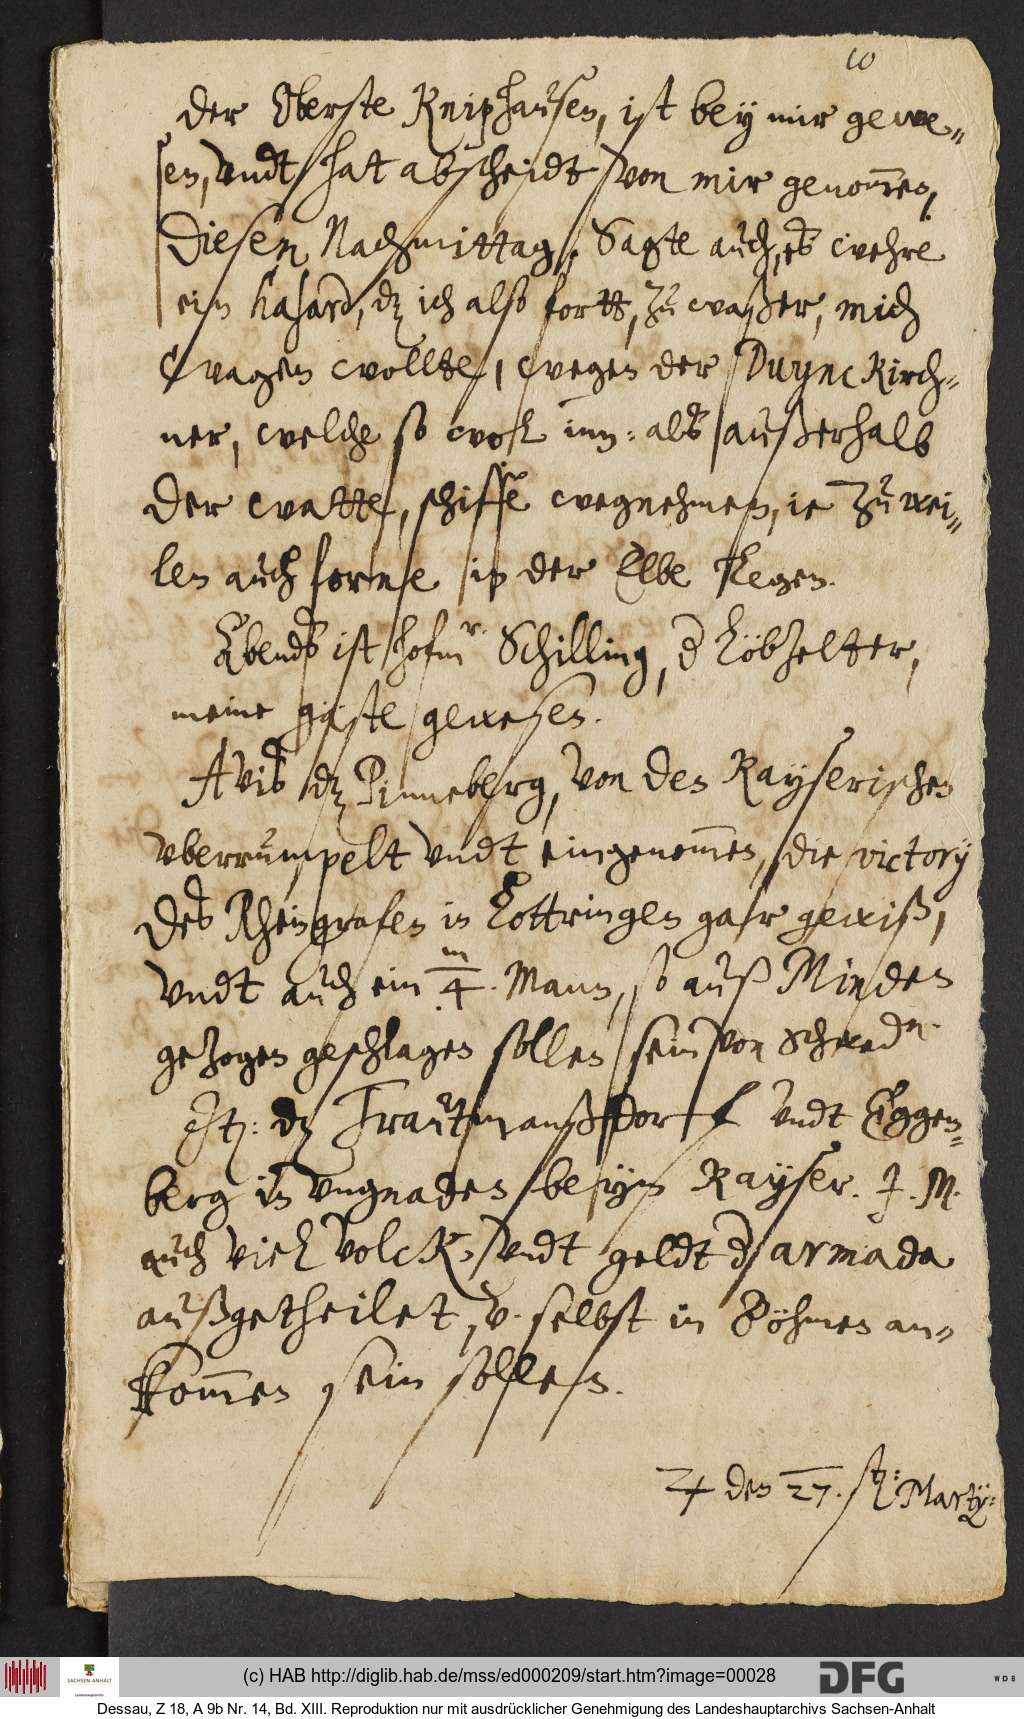 10
der Oberste Kniphausen, ist bey mir gewe„
sen, vndt hat abscheidt von mir genom̅en,
diesen Nachmittag, Sagte auch, es wehre
ein hasard, dz ich also fortt, zu waßer, mich
wagen wollte, wegen der Duynckirch„
ner, welche so wol inn: als außerhalb
der watte, schiffe wegnehmen, ie zu wei„
len auch forne in der Elbe liegen.
Abends ist hofmr. Schilling, d Löbzelter,
meine gäste gewesen.
Avis dz Pinneberg, von den Kayserischen
vberrumpelt vndt eingenom̅en, die victory
des Rheingrafen in Lottringen gahr gewiß,
vndt auch ein m/4. Mann, so auß Minden
gezogen geschlagen sollen sein von Schwedn.
Jt: dz Trautmanßdorff vndt Eggen„
berg in vngnaden beym Kayser. J. M.
auch viel volck, vndt geldt d armada
außgetheilet, v. selbst in Böhmen an„
kom̅en sein sollen.
♃ den 27. st: Martij:
(c) HAB http://diglib.hab.de/mss/ed000209/start.htm?image=00028
SACHSEN-ANHALT
DFG
WDB
Dessau, Z 18, A 9b Nr. 14, Bd. XIII. Reproduktion nur mit ausdrücklicher Genehmigung des Landeshauptarchivs Sachsen-Anhalt